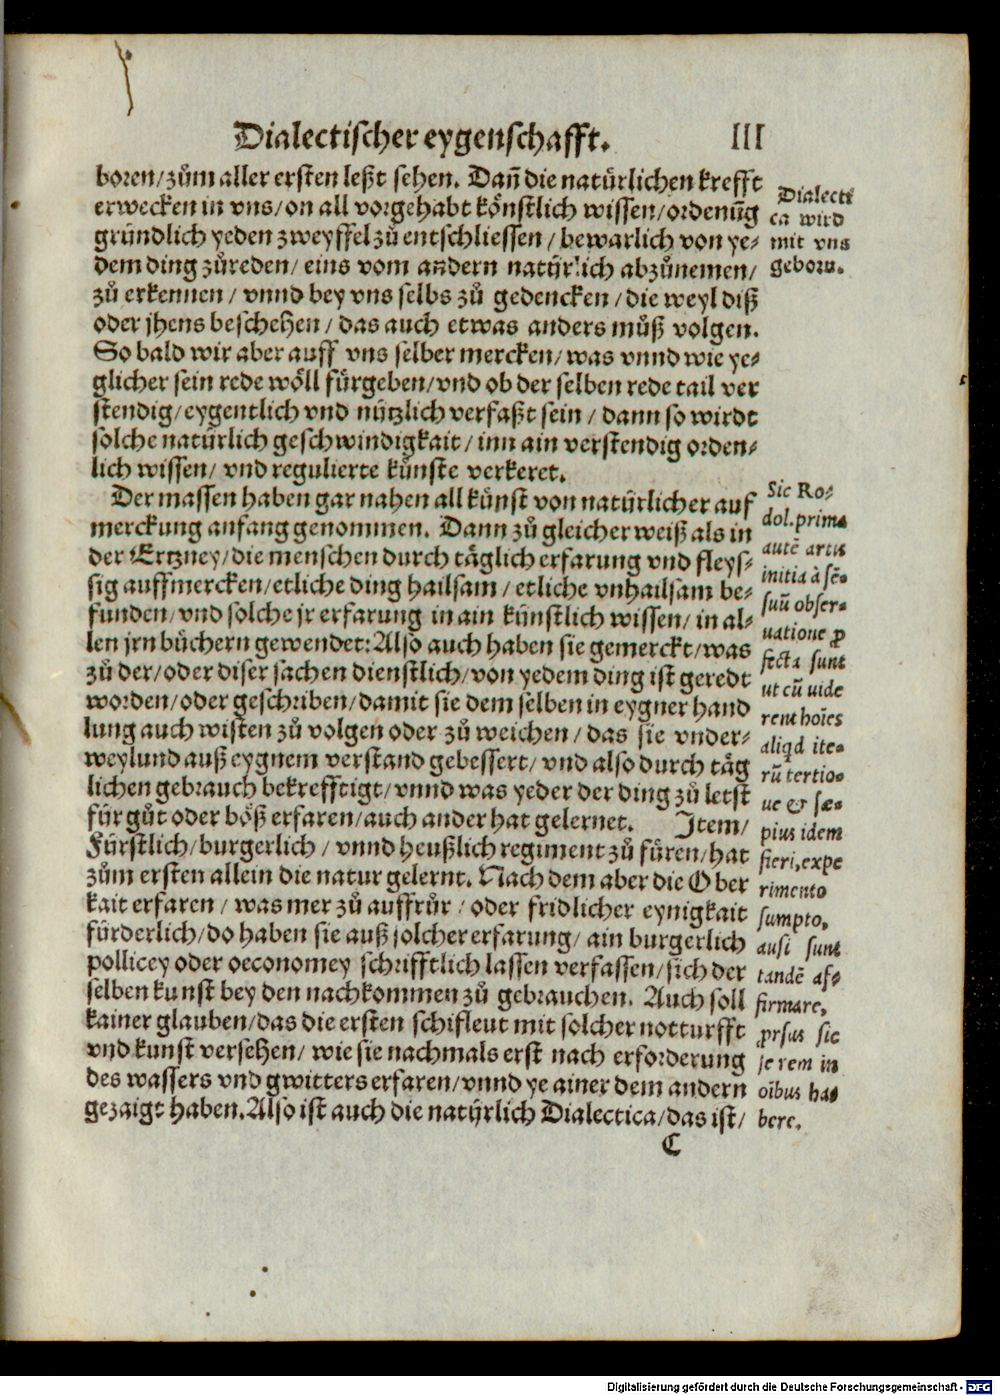 Dialectischer eygenschafft. III
boren/zům aller ersten leßt sehen. Dañ die natürlichen krefft
erwecken in vns/on all vorgehabt könstlich wissen/ordenũg
gründlich yeden zweyffel zů entschliessen / bewarlich von ye⸗
dem ding zůreden/ eins vom andern natürlich abzůnemen/
zů erkennen / vnnd bey vns selbs zů gedencken / die weyl diß
oder jhens beschehen / das auch etwas anders můß volgen.
So bald wir aber auff vns selber mercken/ was vnnd wie ye⸗
glicher sein rede wöll fürgeben/vnd ob der selben rede tail ver
stendig/eygentlich vnd nützlich verfaßt sein / dann so wirdt
solche natürlich geschwindigkait / inn ain verstendig orden⸗
lich wissen/ vnd regulierte künste verkeret.
Der massen haben gar nahen all künst von natürlicher auf
merckung anfang genommen. Dann zů gleicher weiß als in
der Ertzney/die menschen durch täglich erfarung vnd fleys⸗
sig auffmercken/etliche ding hailsam / etliche vnhailsam be⸗
funden/vnd solche jr erfarung in ain künstlich wissen/ in al⸗
len jrn büchern gewendet: Also auch haben sie gemerckt/was
zů der/oder diser sachen dienstlich/von yedem ding ist geredt
worden/oder geschriben/damit sie dem selben in eygner hand
lung auch wisten zů volgen oder zů weichen / das sie vnder⸗
weylund auß eygnem verstand gebessert/ vnd also durch täg
lichen gebrauch bekrefftigt/vnnd was yeder der ding zů letst
für gůt oder böß erfaren/auch ander hat gelernet. Item/
Fürstlich/burgerlich / vnnd heußlich regiment zů füren/hat
zům ersten allein die natur gelernt. Nach dem aber die Ober
kait erfaren / was mer zů auffrůr / oder fridlicher eynigkait
fürderlich/do haben sie auß solcher erfarung/ ain burgerlich
pollicey oder oeconomey schrifftlich lassen verfassen/sich der
selben kunst bey den nachkommen zů gebrauchen. Auch soll
kainer glauben/das die ersten schifleut mit solcher notturfft
vnd kunst versehen/ wie sie nachmals erst nach erforderung
des wassers vnd gwitters erfaren/vnnd ye ainer dem andern
gezaigt haben. Also ist auch die natürlich Dialectica/das ist/
C
Dialecti
ca wird
mit vns
geborn.
Sic Ro⸗
dol. prima
autē artis
initia à sē⸗
suũ obser⸗
uatione ꝓ
fecta sunt
ut cũ uide
rent hoīes
aliqd ite⸗
rũ tertio⸗
ue & sæ⸗
pius idem
fieri, expe
rimento
sumpto,
ausi sunt
tandē af⸗
firmare,
ꝓrsus sic
se rem in
oībus ha⸗
bere.
Digitalisierung gefördert durch die Deutsche Forschungsgemeinschaft - DFG